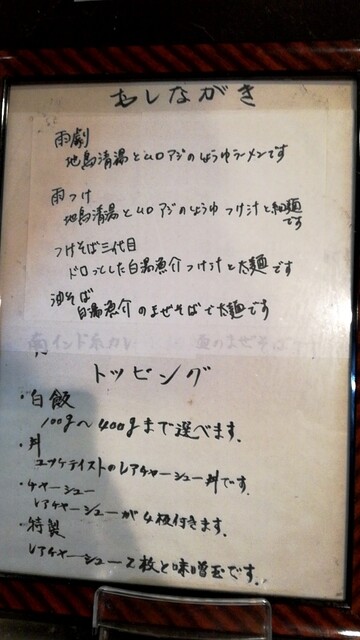 おしながき
雨劇
地鳥清湯とムロアジのしょうゆラーメンです
雨つけ
地鳥清湯とムロアジのしょうゆつけ汁と細麺
です
つけそば三代目
ドロっとした白湯魚介つけ汁と太麺です
油そば
白湯魚介のまぜそばで太麺です
南インド
のまぜそば
トッピング
・白飯
100g〜400gまで選べます。
・丼
ユッケテイストのレアチャーシュー丼です。
・チャーシュー
レアチャーシューが4枚付きます。
・特製
レアチャーシュー2枚と味噌玉です。